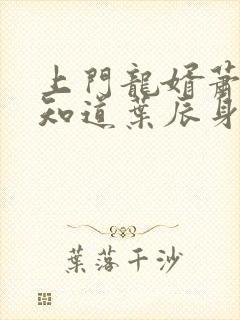 上門龍婿蕭
知道葉辰身
葉落千沙